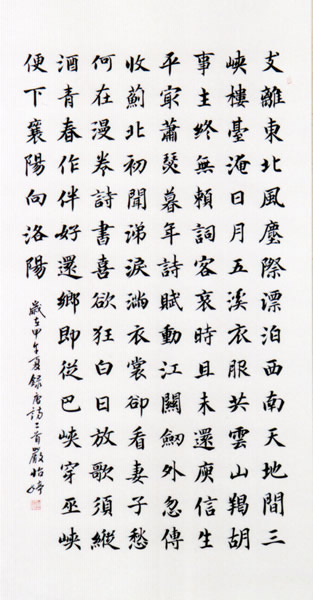 支離東北風塵際漂泊西南天地間三
峽樓臺淹日月五溪衣服共雲山羯胡
事主終無賴詞客哀時且未還庾信生
平㝡蕭瑟暮年詩賦動江關劒外忽傳
收薊北初聞涕淚滿衣裳卻看妻子愁
何在漫卷詩書喜欲狂白日放歌須縱
酒青春作伴好還鄉即從巴峽穿巫峽
便下襄陽向洛陽
歲在甲午夏錄唐詩二首嚴怡婷